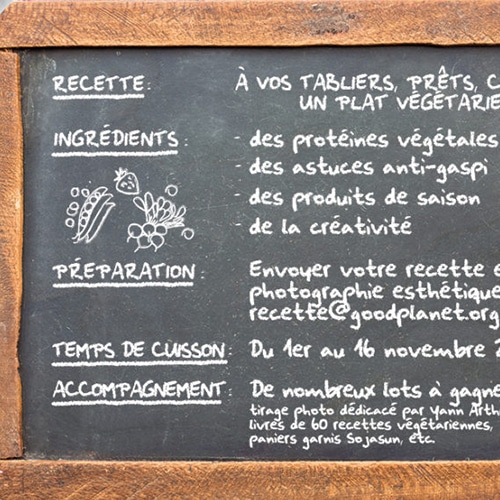 RECETTE: À VOS TABLIERS, PRÊTS,
UN PLAT
INGRÉDIENTS : - des protéines végétales
- des astuces anti-gaspi
- des produits de saison
- de la créativité
PRÉPARATION : Envoyer votre recette
photographie esthétique
recette@goodplanet.org
TEMPS DE CUISSON Du 1er au 16 novembre
ACCOMPAGNEMENT : De nombreux lots à
tirage photo dédicacé par Yann
livres de 60 recettes végétariennes,
paniers garnis Sojasun, etc.